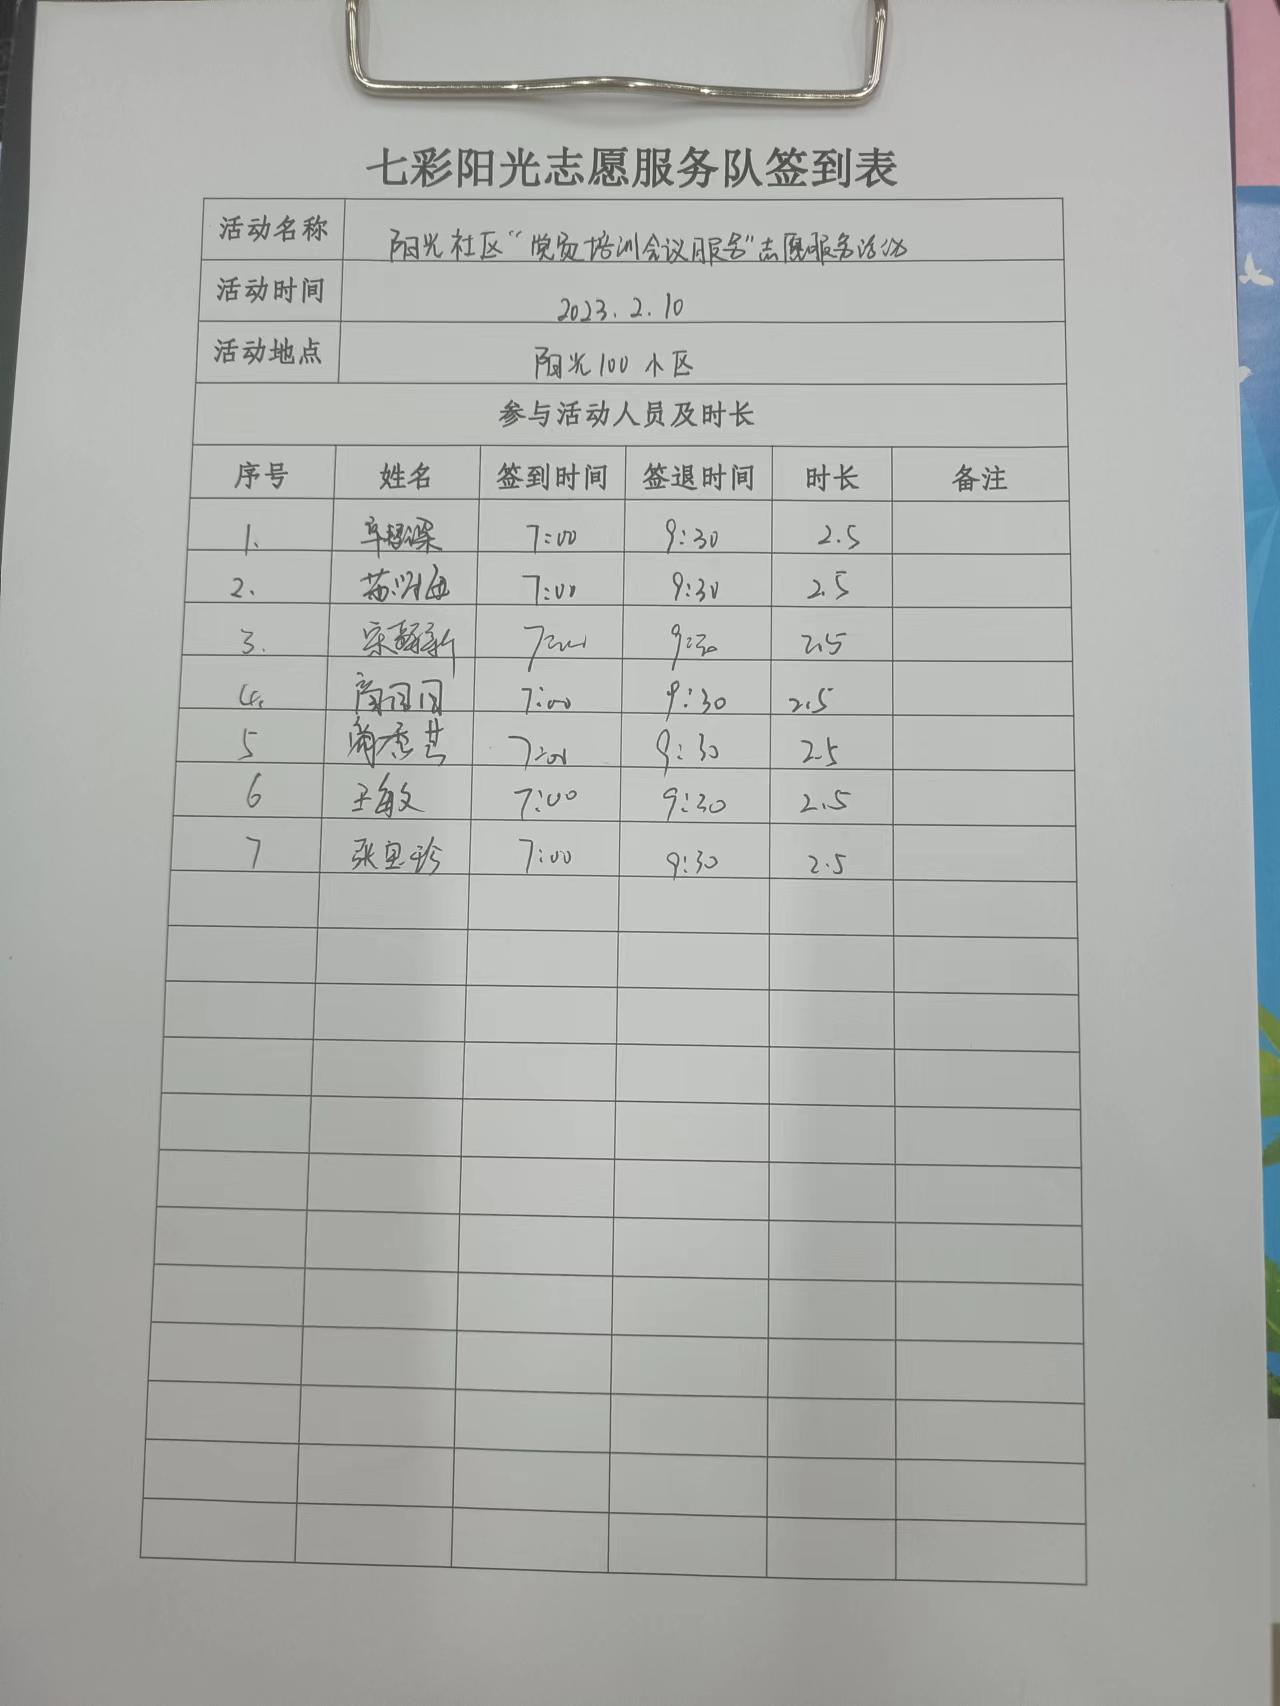 七彩阳光志愿服务队签到表
活动名称 阳光社区“党员培训会议服务”志愿服务活动
活动时间 2023.2.10
活动地点 阳光100小区
参与活动人员及时长
序号 姓名 签到时间 签退时间 时长 备注
1. 7:00 9:30 2.5
2. 7:00 9:30 2.5
3. 宋 新 7:00 9:30 2.5
4. 7:00 9:30 2.5
5 7:00 9:30 2.5
6 王敏文 7:00 9:30 2.5
7 张 珍 7:00 9:30 2.5